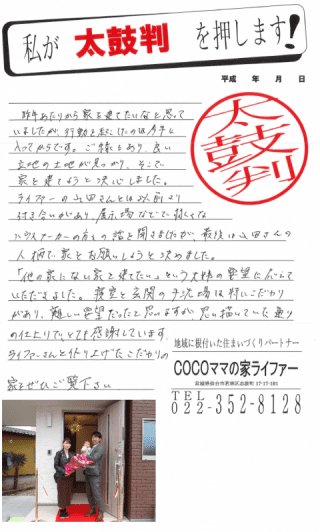 私が 太鼓判 を押します!
平成 年 月 日
太鼓判
昨年あたりから家を建てたいなと思って
いましたが、行動を起こしたのは今年に
入ってからです。ご縁もあり、良い
立地の土地が見つかり、そこで
家を建てようと決心しました。
ライファーの 田さんとは以前より
付き合いがあり、展示場などで様々な
ハウスメーカーの方の話を聞きましたが、最後は 田さんの
人柄で家をお願いしようと決めました。
「他の家にない家を建てたい」という夫婦の要望に応えて
いただきました。寝室と玄関の手洗場は特にこだわり
があり、難しい要望だったと思いますが、思い描いていた通り
の仕上りで、とても感謝しています。
ライファーさんと作り上げたこだわりの
家をぜひご覧下さい
地域に根付いた住まいづくりパートナー
COCOママの家ライファー
宮城県仙台市若林区 17-17-101
TEL
022-352-8128